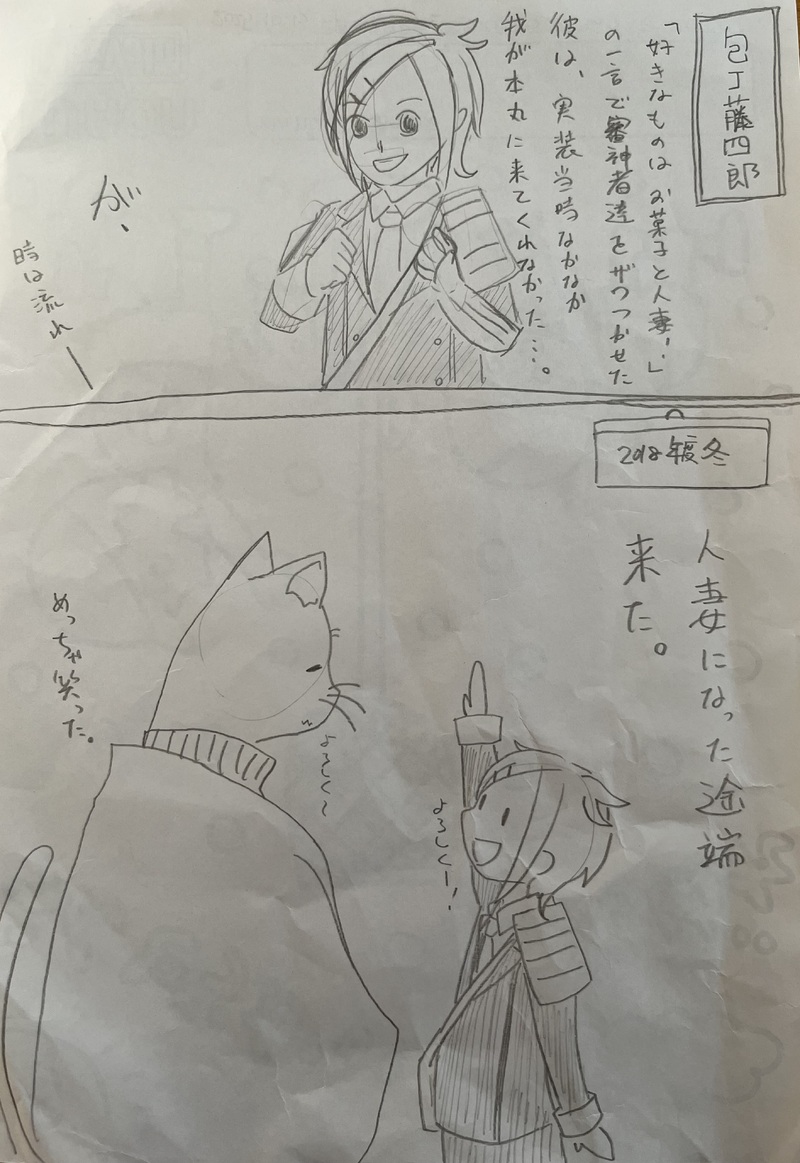 包丁藤四郎
「好きなものはお菓子と人妻！」
の一言で審神者達をザワつかせた
彼は、実装当時なかなか
我が本丸に来てくれなかった…。
が、
時は流れ
2018年度冬
人妻になった途端
来た。
よろしく〜
よろしくー！
めっちゃ笑った。